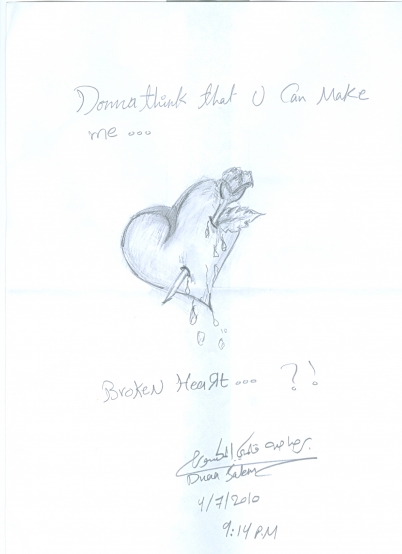 Donna think that U Can Make
me ...
Broken Heart ... ?!
Duaa Salem
4/7/2010
9:14 PM